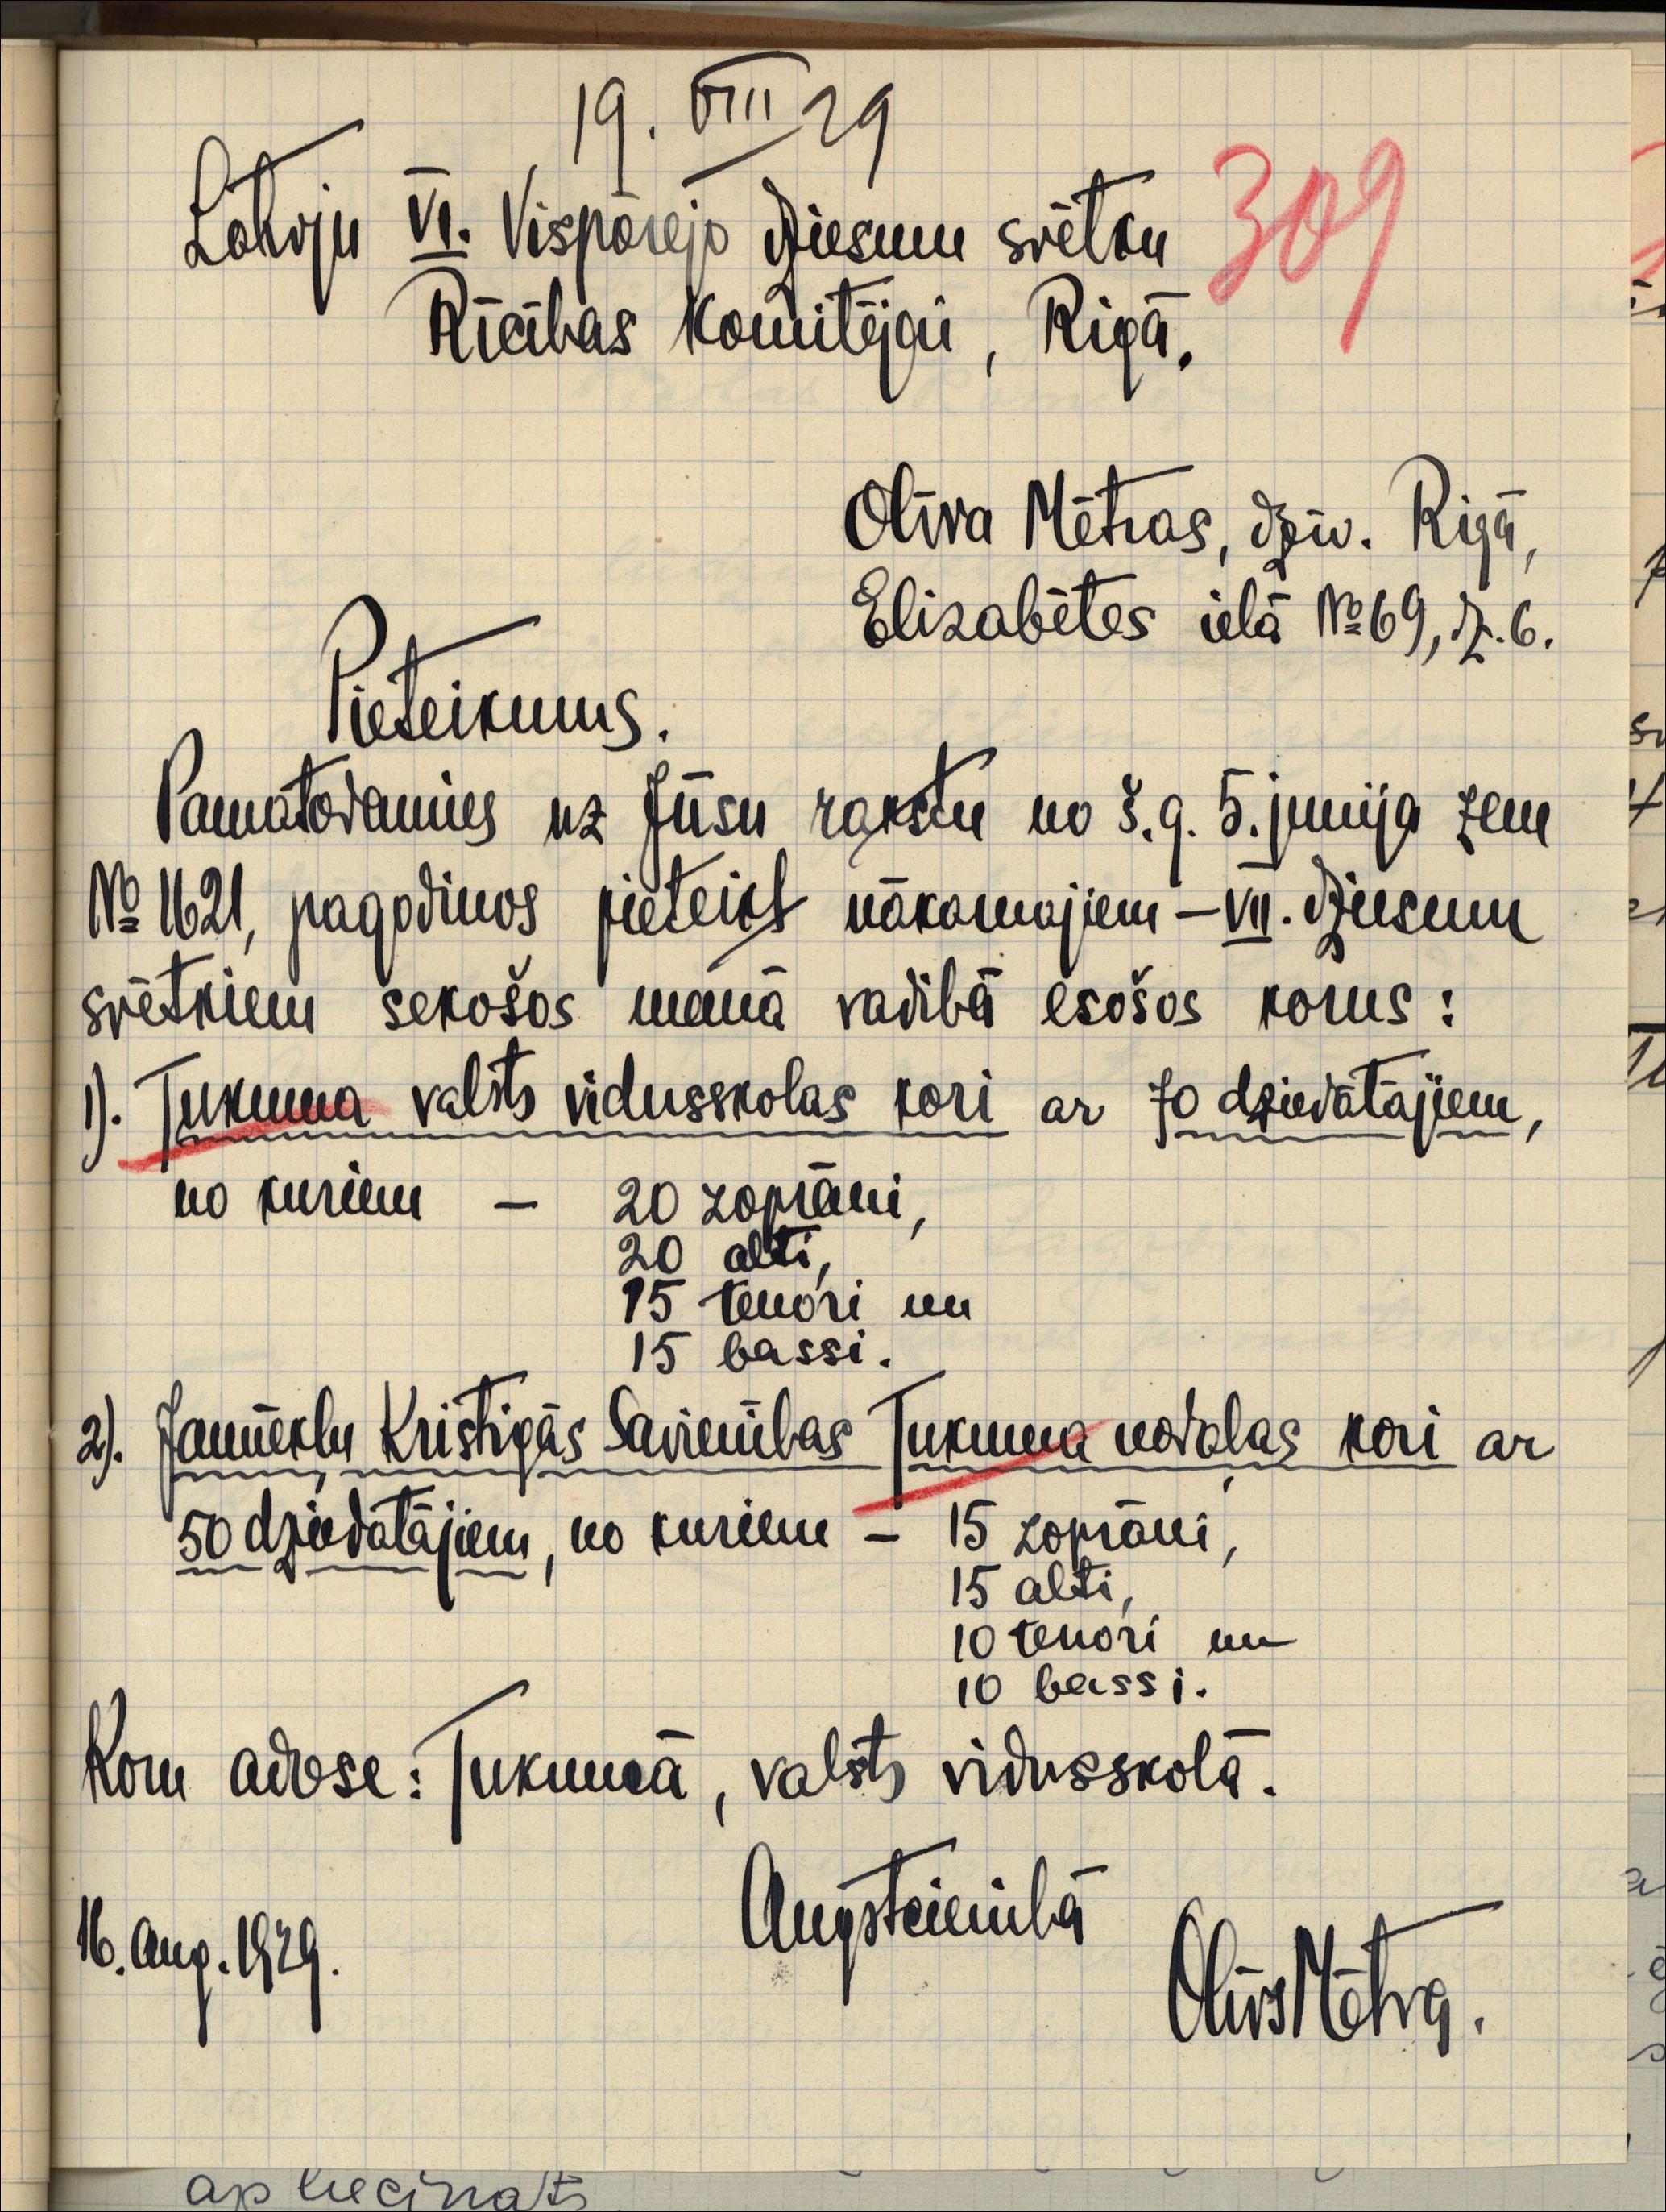 19. VIII 29
309
Latvju VI. Vispārejo dziesmu svētku
Rīcības Komitējai, Rigā.
Olīva Mētras, dzīv. Rigā,
Elizabētes ielā № 69, dz. 6.
Pieteikums.
Pamatodamies uz Jūsu rakstu no š.g. 5. junija zem
№ 1621, pagodinos pieteikt nākamajiem – VII. dziesmu
svētkiem sekošos manā vadibā esošos korus:
1). Tukuma valsts vidusskolas kori ar 70 dziedātājiem,
no kuriem – 20 zoprāni,
20 alti,
15 tenori un
15 bassi.
2). Jaunekļu Kristigās Savienības Tukuma nodaļas kori ar
50 dziedātājiem, no kuriem – 15 zoprāni,
15 alti,
10 tenori un
10 bassi.
Koru adrese: Tukumā, valsts vidusskolā.
Augstcienibā
16. aug. 1929.
Olīvs Mētra.
apliecināts